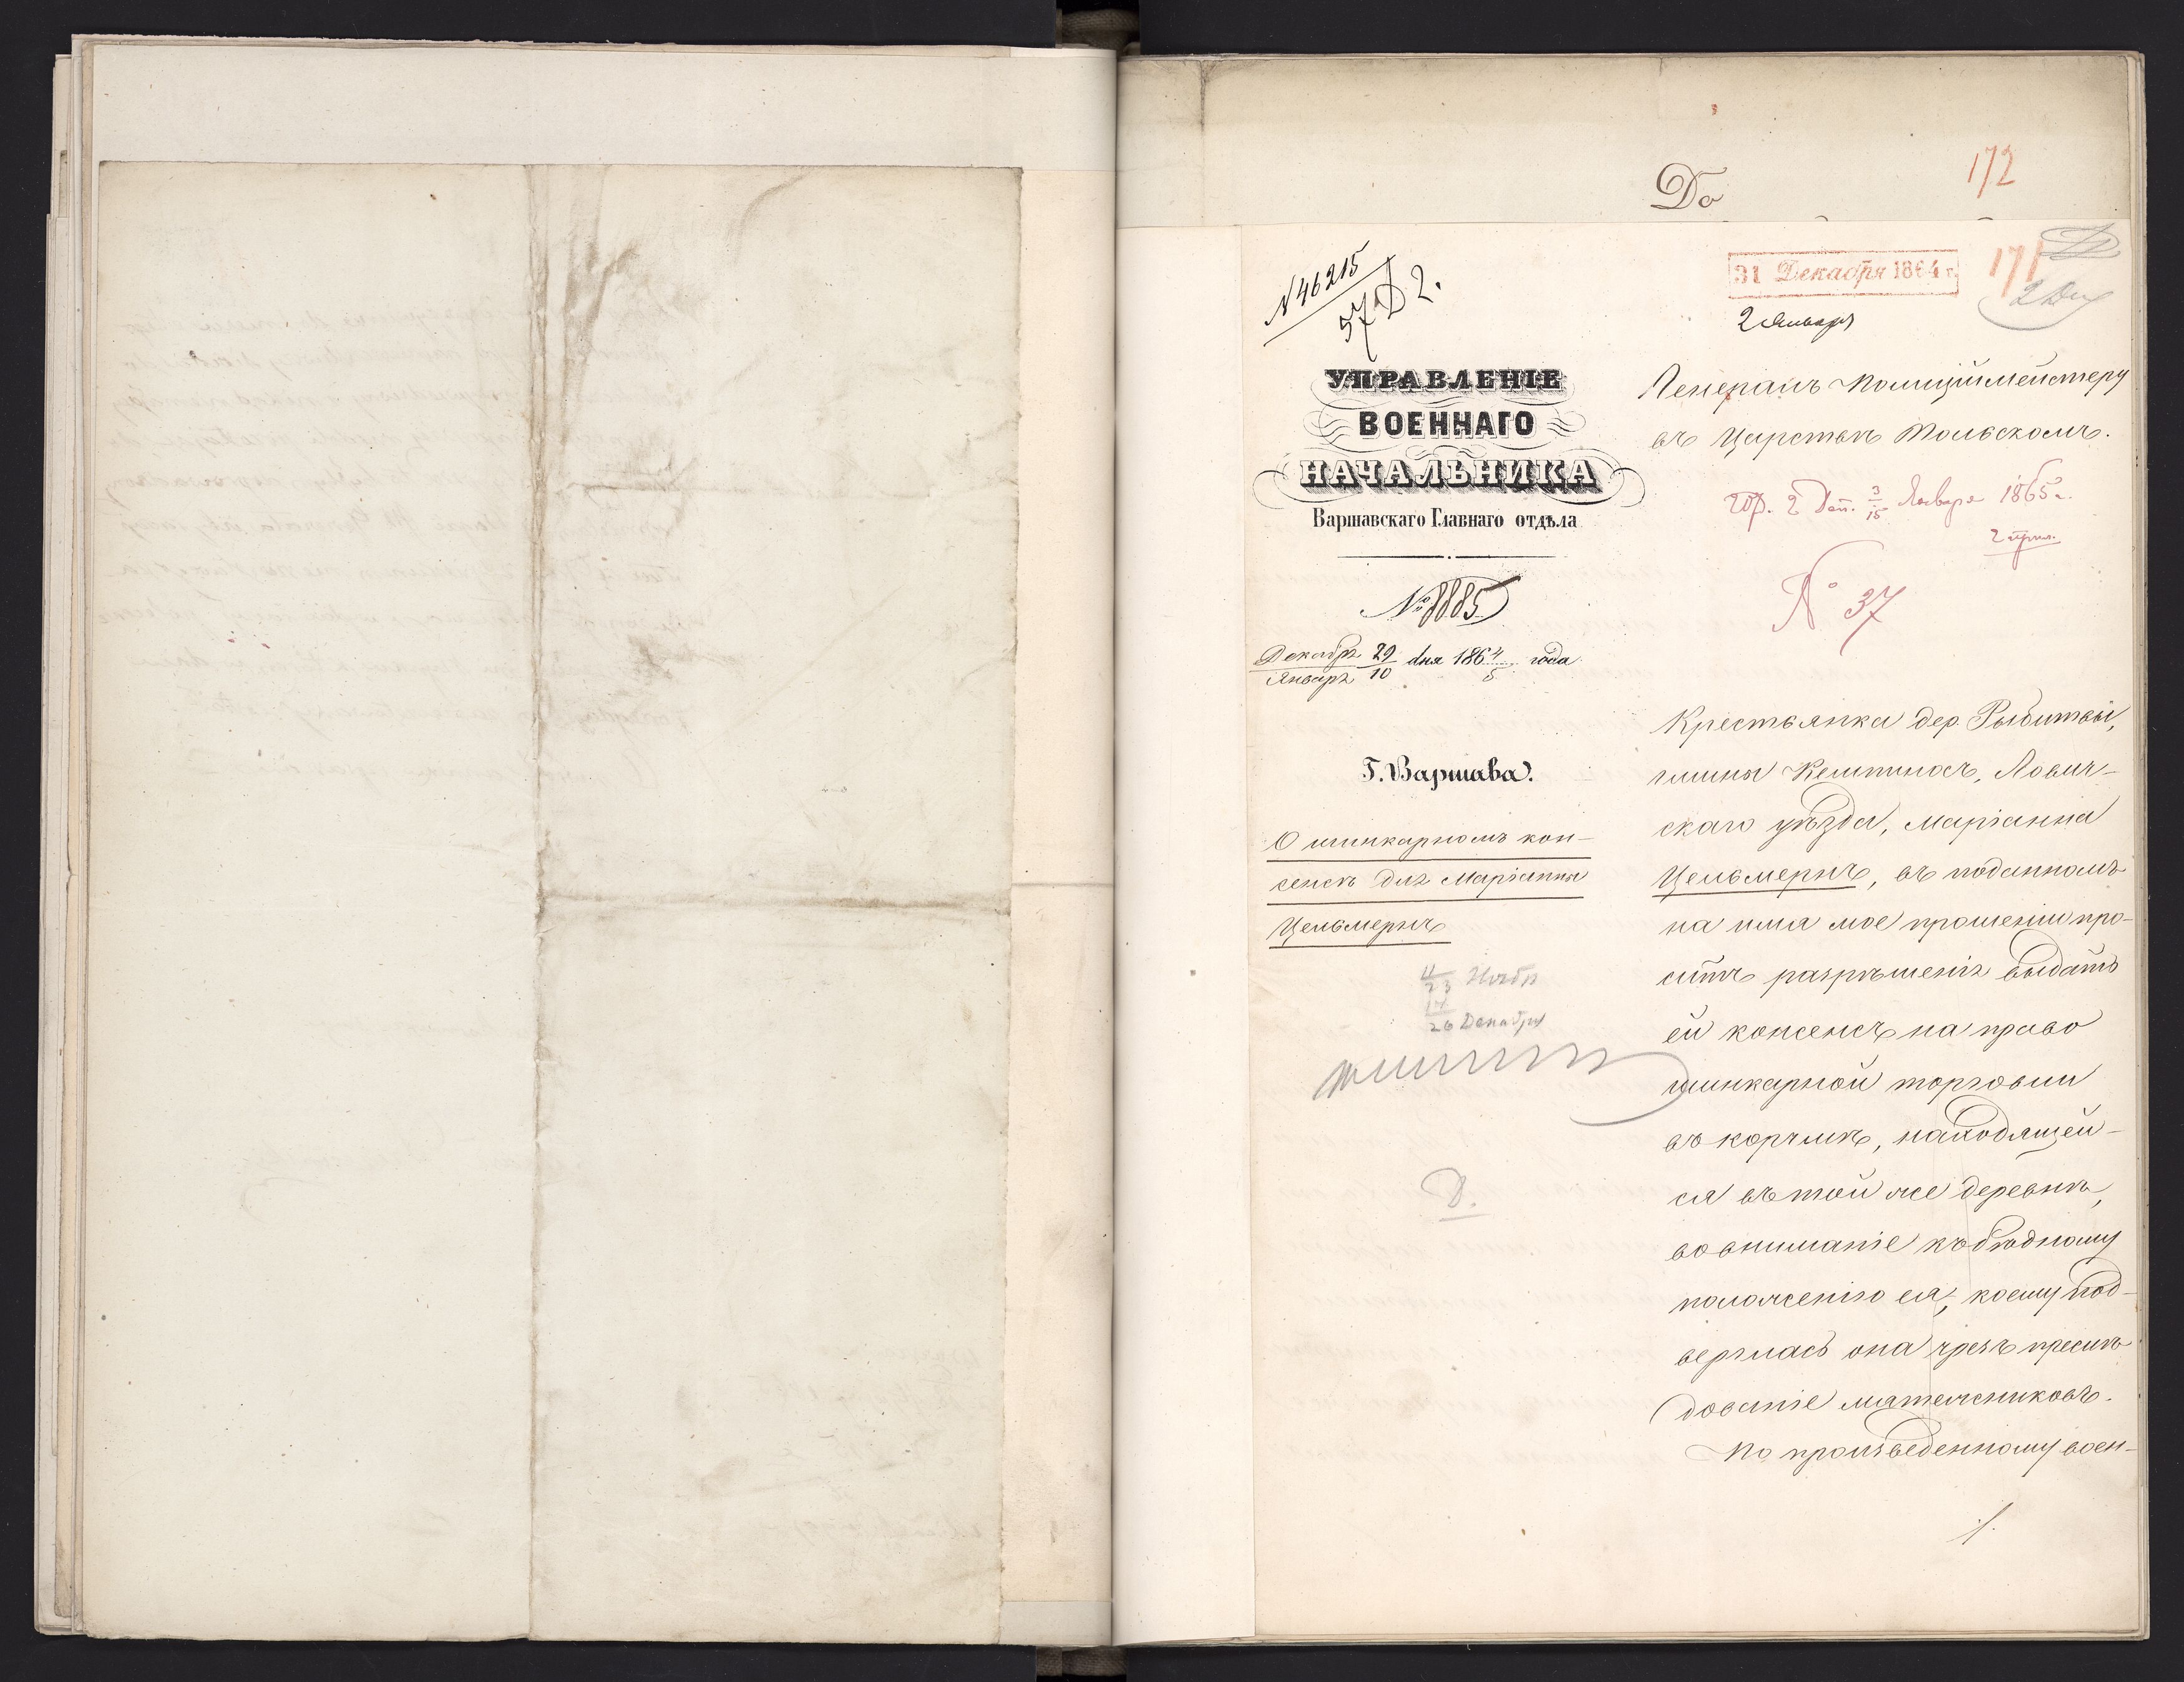 До
172
171
31 Декабря 1864 г.
2 Января
N 46215
57 Д 2.
УПРАВЛЕНІЕ
ВОЕННАГО
НАЧАЛЬНИКА
Варшавскаго Главнаго отдѣла
№ 8885
Декабря 29 дня 1864 года
Январь 10 5
Г. Варшава.
О шинкарномъ кон-
сенсѣ для Маріанны
Цельмернъ
11/23 Ноябр
14/26 Декабря
Д.
Генералъ Полиціймейстеру
въ Царствѣ Польскомъ.
2 Деп. 3/15 Января 1865 г.
№ 37
Крестьянка дер. Рыбитвы,
гмины Кемпиносъ, Лович-
скаго уѣзда, Маріанна
Цельмернъ, въ поданномъ
на имя мое прошеніи про-
ситъ разрѣшенія выдать
ей консенсъ на право
шинкарной торговли
въ корчмѣ, находящей-
ся въ той же деревнѣ,
во вниманіе къ бѣдному
положенію ея, коему под-
верглась она чрезъ преслѣ-
дованіе мятежниковъ.
По произведенному воен-